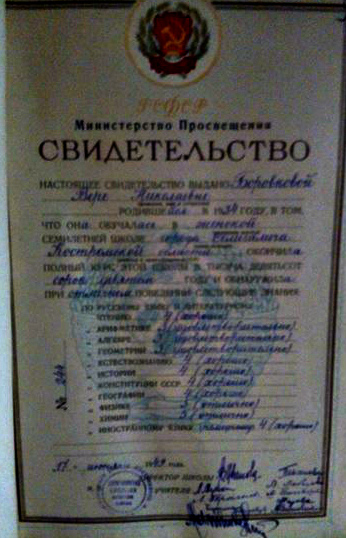 РСФСР
Министерство Просвещения
СВИДЕТЕЛЬСТВО
НАСТОЯЩЕЕ СВИДЕТЕЛЬСТВО ВЫДАНО Боровковой
Вере Николаевне
РОДИВШЕЙся В 1934 ГОДУ, В ТОМ,
ЧТО ОНА ОБУЧАЛАСЬ В женской
СЕМИЛЕТНЕЙ ШКОЛЕ города Солигалича
Костромской области ОКОНЧИЛА
ПОЛНЫЙ КУРС ЭТОЙ ШКОЛЫ В ТЫСЯЧА ДЕВЯТЬСОТ
сорок девятом ГОДУ И ОБНАРУЖИЛА
ПРИ отличном ПОВЕДЕНИИ СЛЕДУЮЩИЕ ЗНАНИЯ
ПО РУССКОМУ ЯЗЫКУ И ЛИТЕРАТУРНОМУ
ЧТЕНИЮ 4 (хорошо)
АРИФМЕТИКЕ 3 (удовлетворительно)
АЛГЕБРЕ 3 (удовлетворительно)
ГЕОМЕТРИИ 3 (удовлетворительно)
ЕСТЕСТВОЗНАНИЮ 4 (хорошо)
ИСТОРИИ 4 (хорошо)
КОНСТИТУЦИИ СССР 4 (хорошо)
ГЕОГРАФИИ 4 (хорошо)
ФИЗИКЕ 5 (отлично)
ХИМИИ 5 (отлично)
ИНОСТРАННОМУ ЯЗЫКУ 4 (хорошо)
№ 244
1949 года
ДИРЕКТОР ШКОЛЫ
УЧИТЕЛЯ